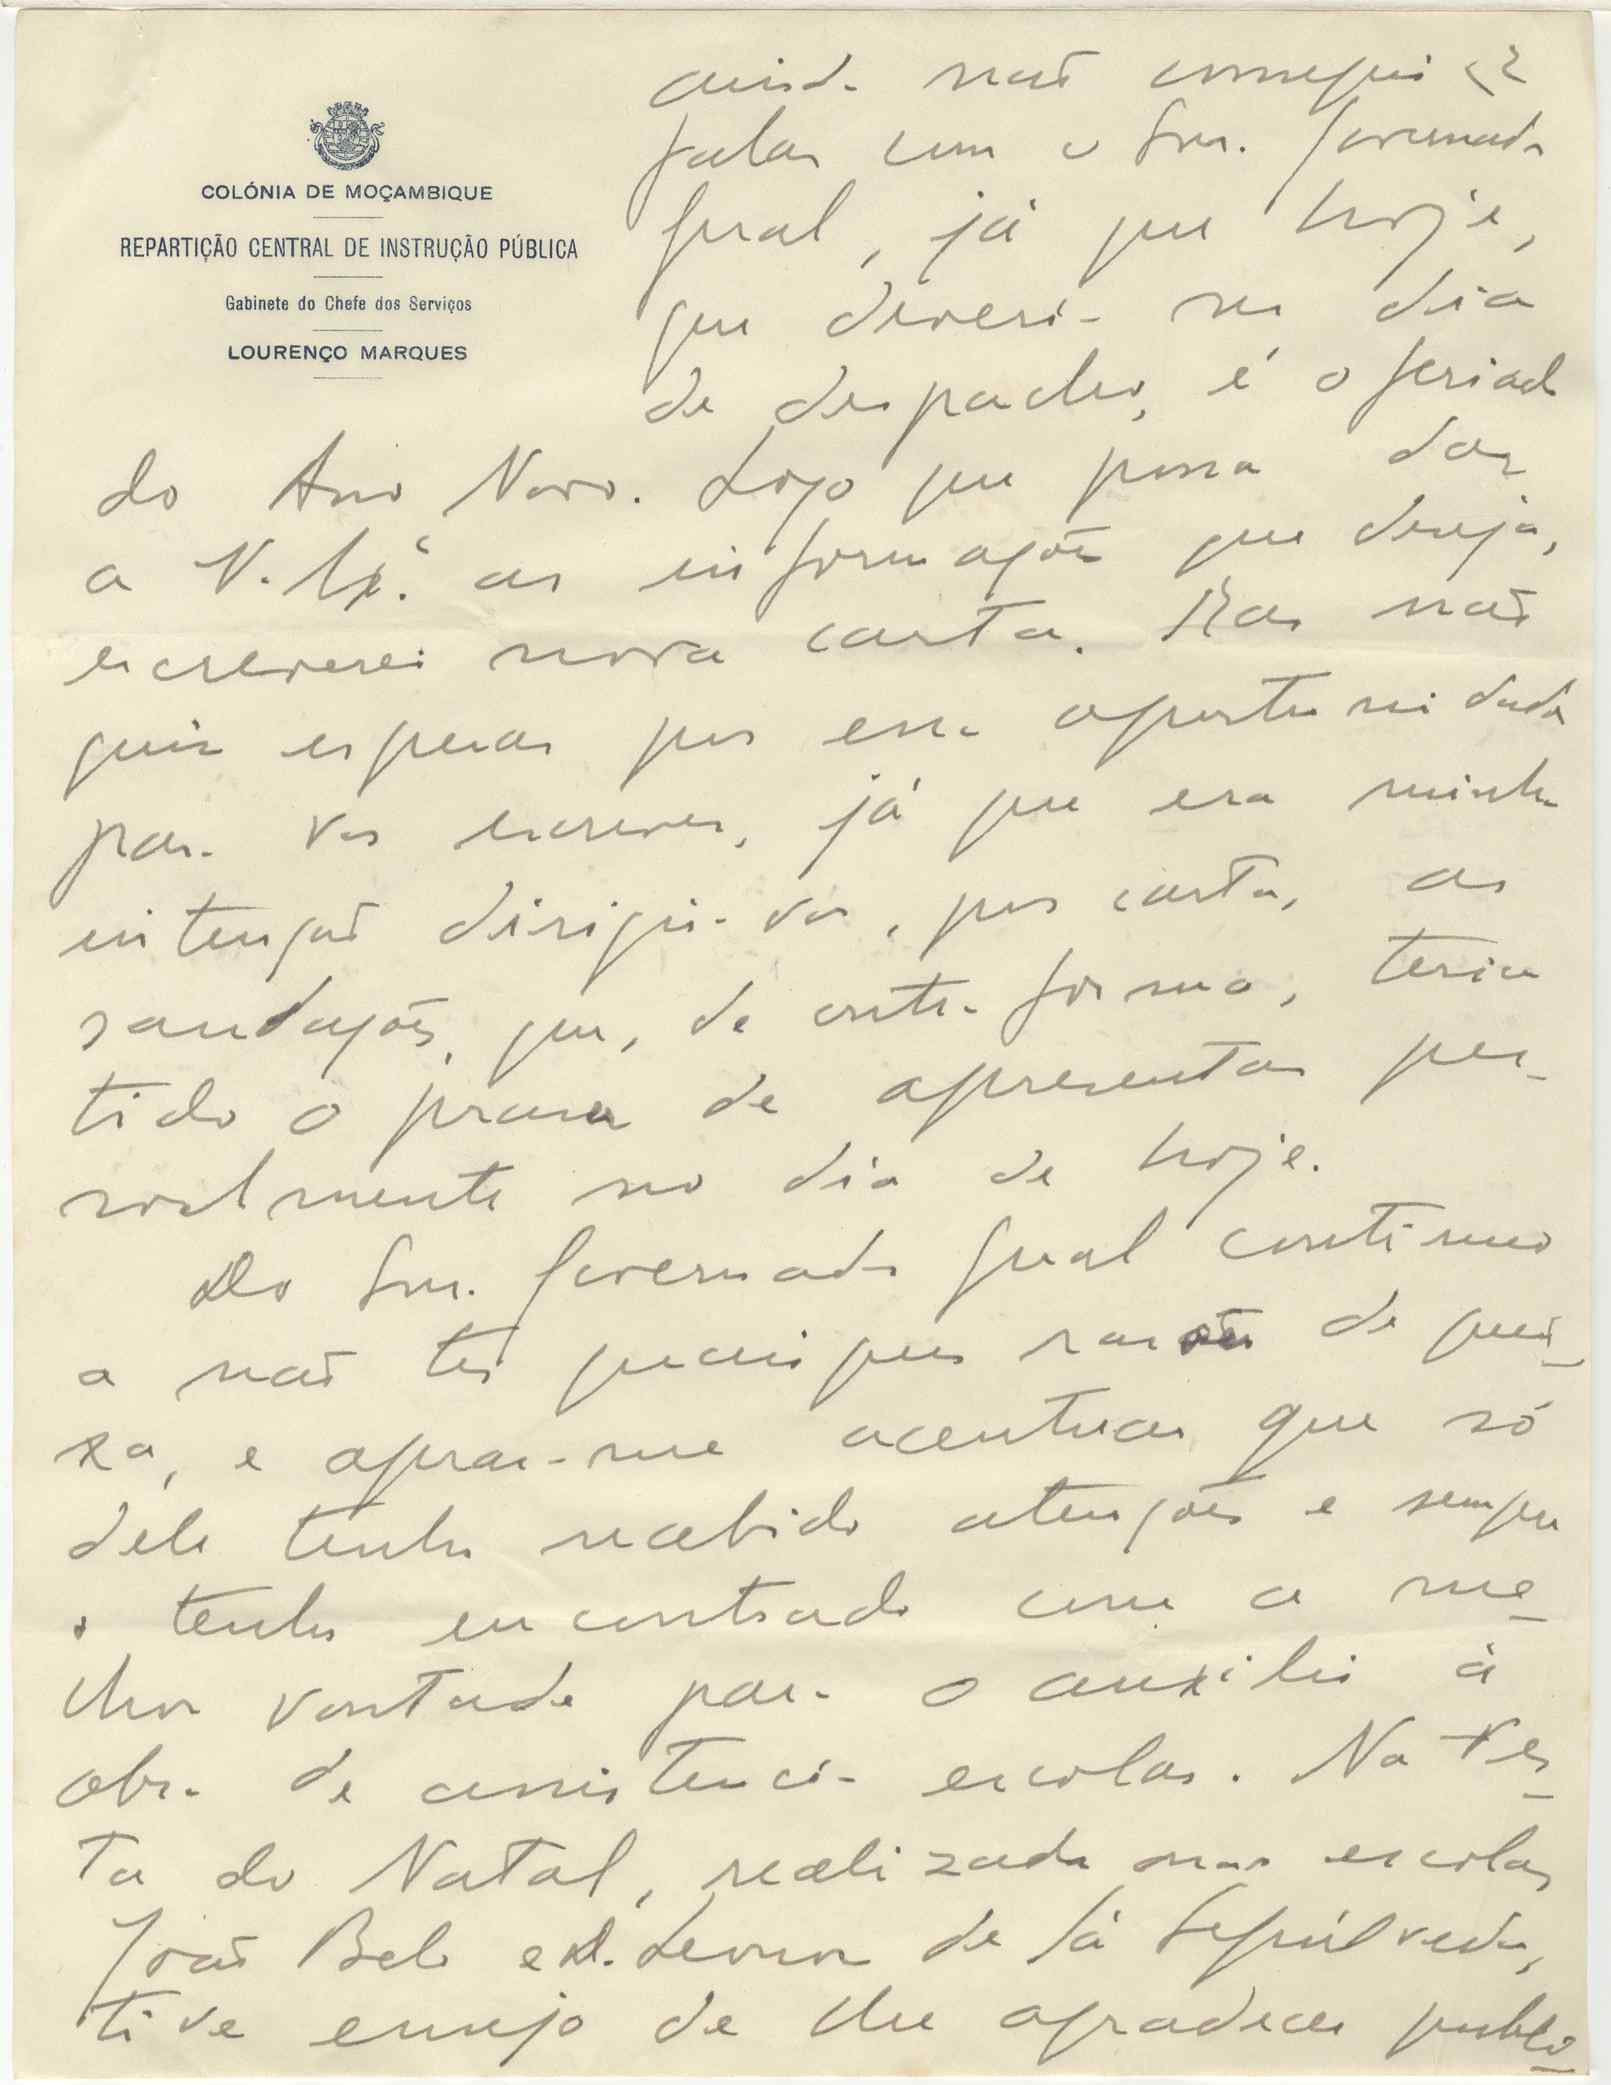 COLÓNIA DE MOÇAMBIQUE
REPARTIÇÃO CENTRAL DE INSTRUÇÃO PÚBLICA
Gabinete do Chefe dos Serviços
LOURENÇO MARQUES
ainda não consegui
falar com o Snr. Governador
Geral, já que hoje,
que deveria ser dia
de despacho, é o feriado
do Ano Novo. Logo que possa dar
a V. Exª. as informações que deseja,
escreverei nova carta. Mas não
quis esperar por essa oportunidade
para vos escrever, já que era minha
intenção dirigir-vos, por carta, as
saudações, que, de outra forma, teria
tido o prazer de apresentar pes-
soalmente no dia de hoje.
Do Snr. Governador Geral continuo
a não ter quaisquer razões de quei-
xa, e apraz-me acentuar que só
dele tenho recebido atenções e sempre
o tenho encontrado com a me-
lhor vontade para o auxilio à
obra de assistencia escolar. Na Fes-
ta do Natal, realizada nas escolas
João Belo e D. Leonor de Sá Sepúlveda,
tive ensejo de lhe agradecer publi-